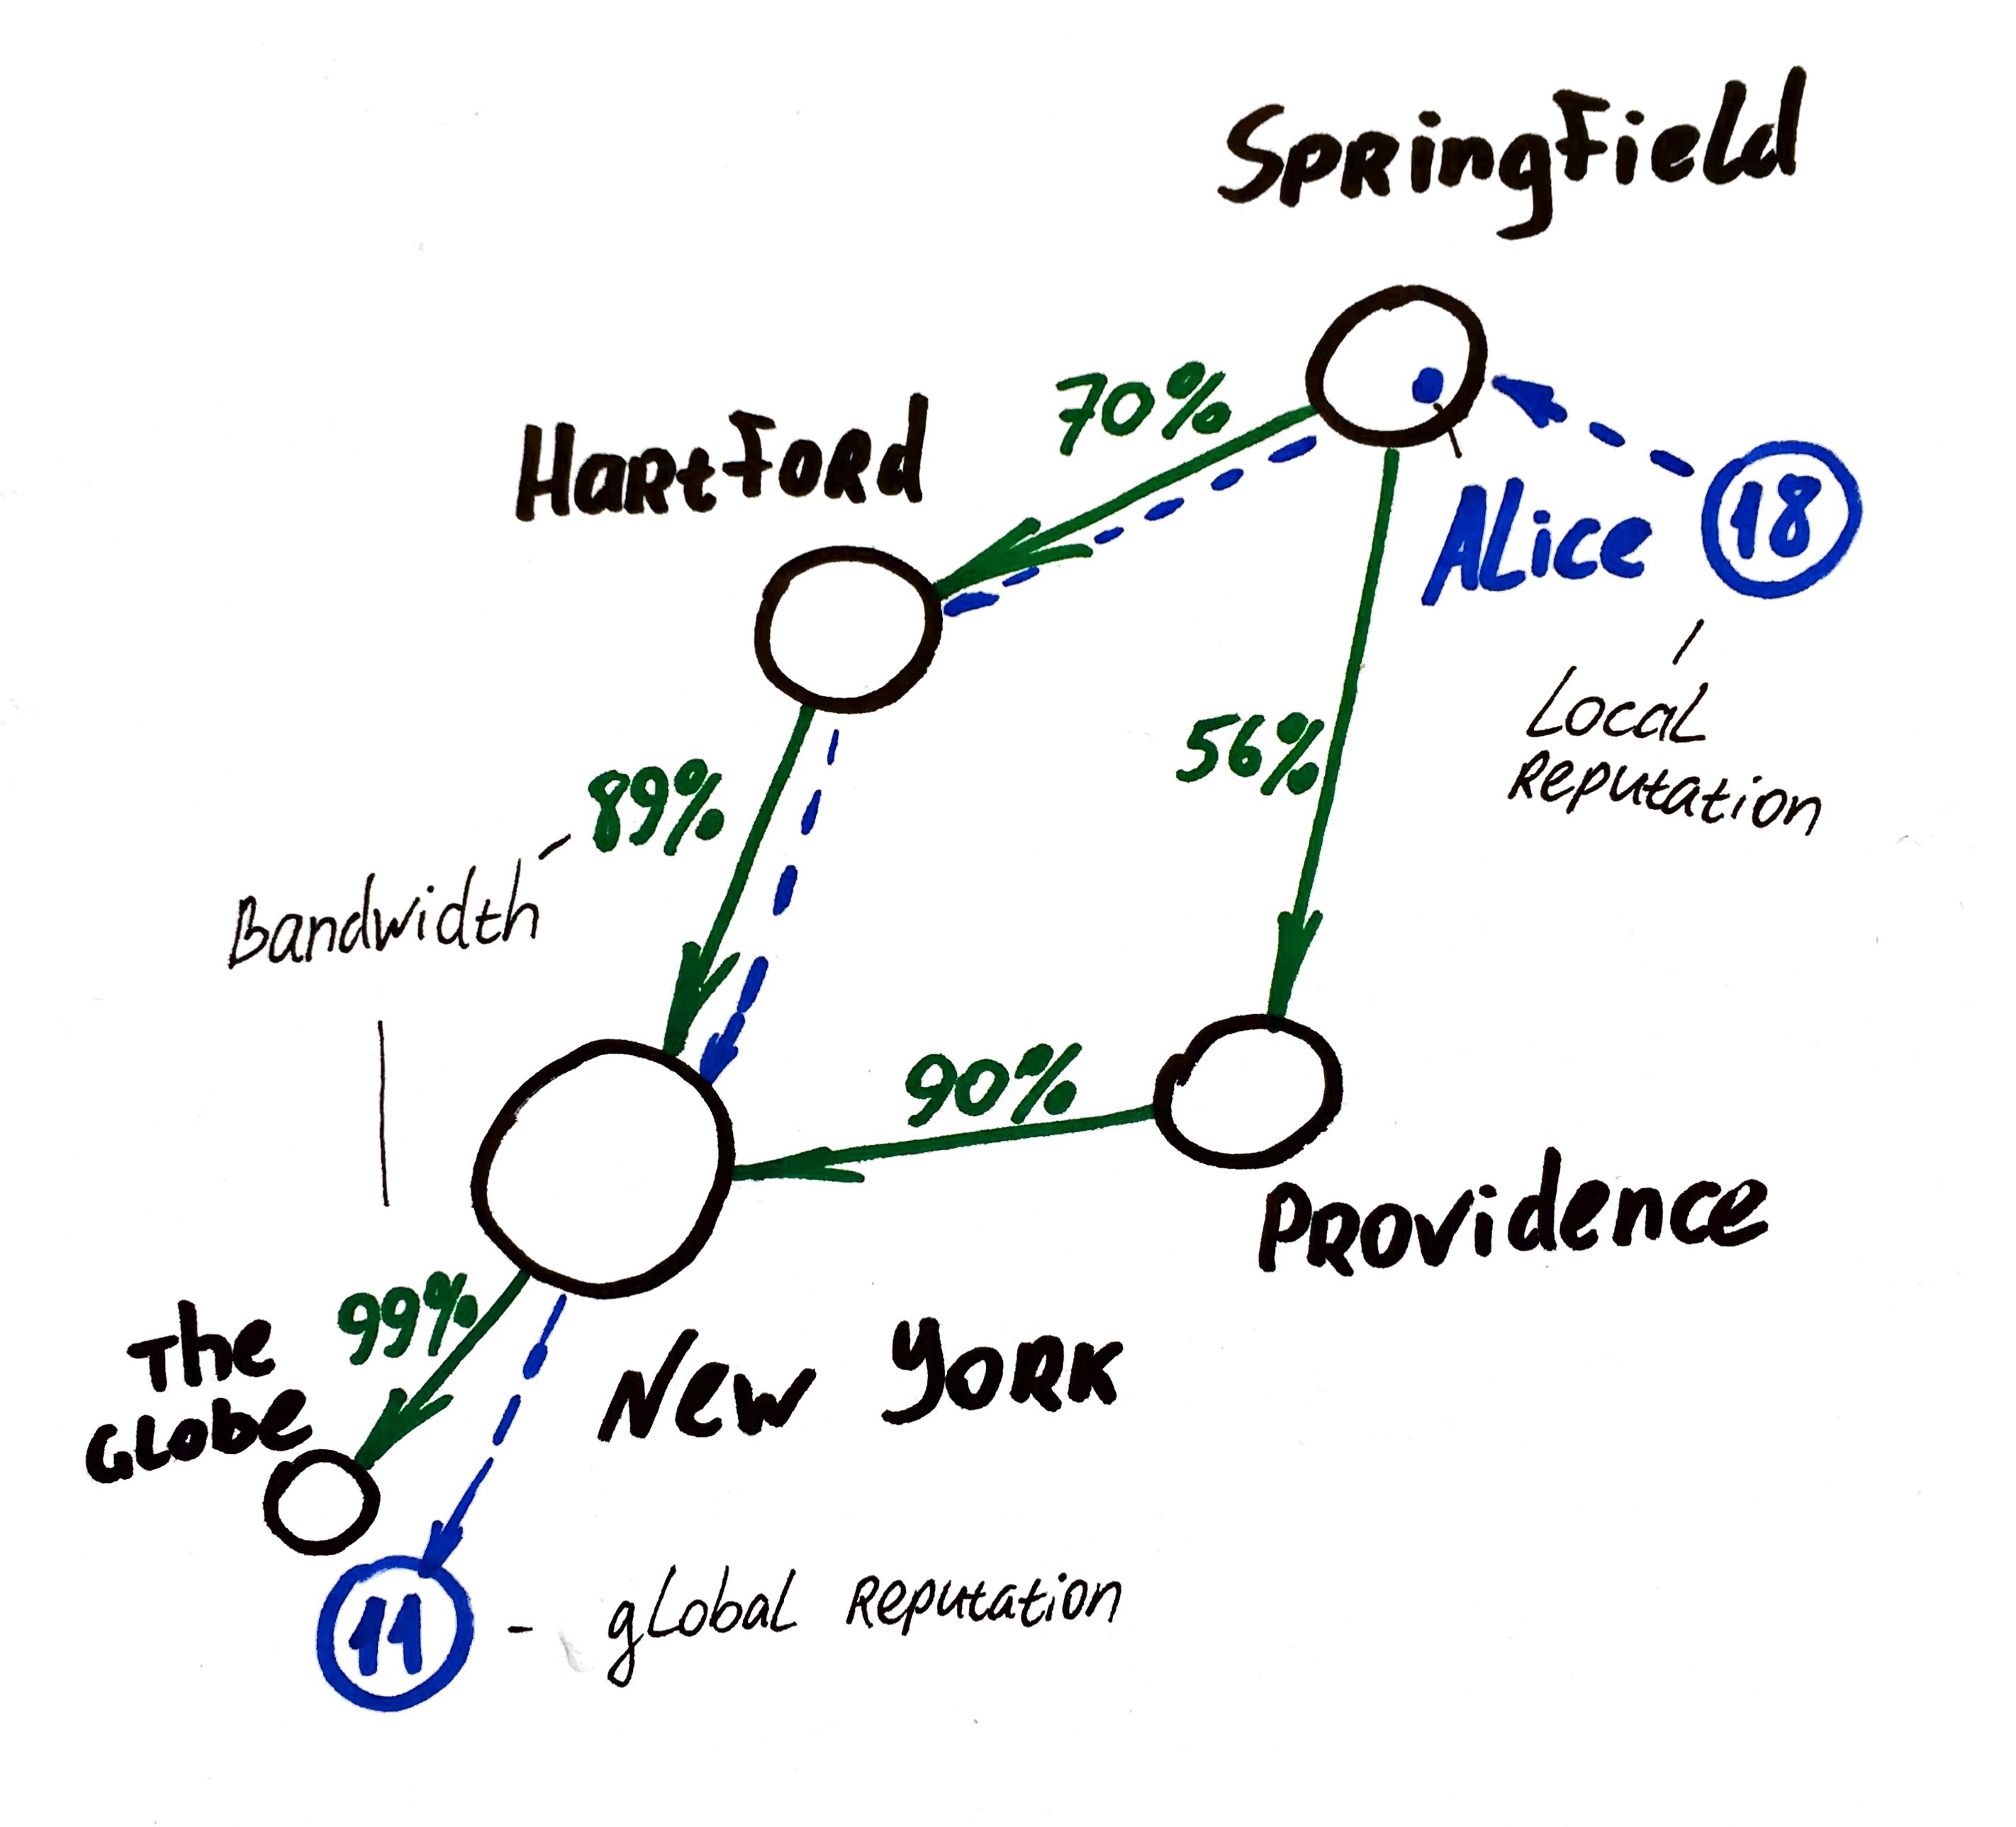 Springfield
70%
Hartford
Alice 18
Local
Reputation
56%
89%
Bandwidth
90%
Providence
99%
The
Globe
New York
11 - global Reputation